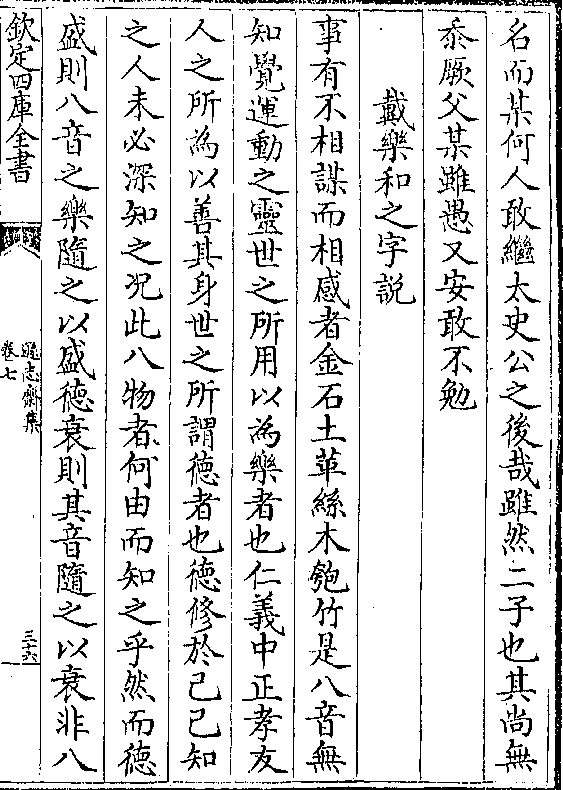 名而某何人敢繼太史公之後哉雖然二子也其尚無
忝厥父某雖愚又安敢不勉
戴樂和之字説
事有不相謀而相感者金石土革絲木匏竹是八音無
知覺運動之靈世之所用以為樂者也仁義中正孝友
人之所為以善其身世之所謂徳者也徳修於己己知
之人未必深知之况此八物者何由而知之乎然而徳
盛則八音之樂隨之以盛徳衰則其音隨之以衰非八
欽定四庫全書
遜志齋集
卷七
三十六